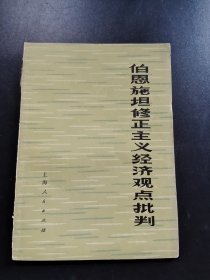 伯恩施坦修正主义经济观点批判
上海人民出版社